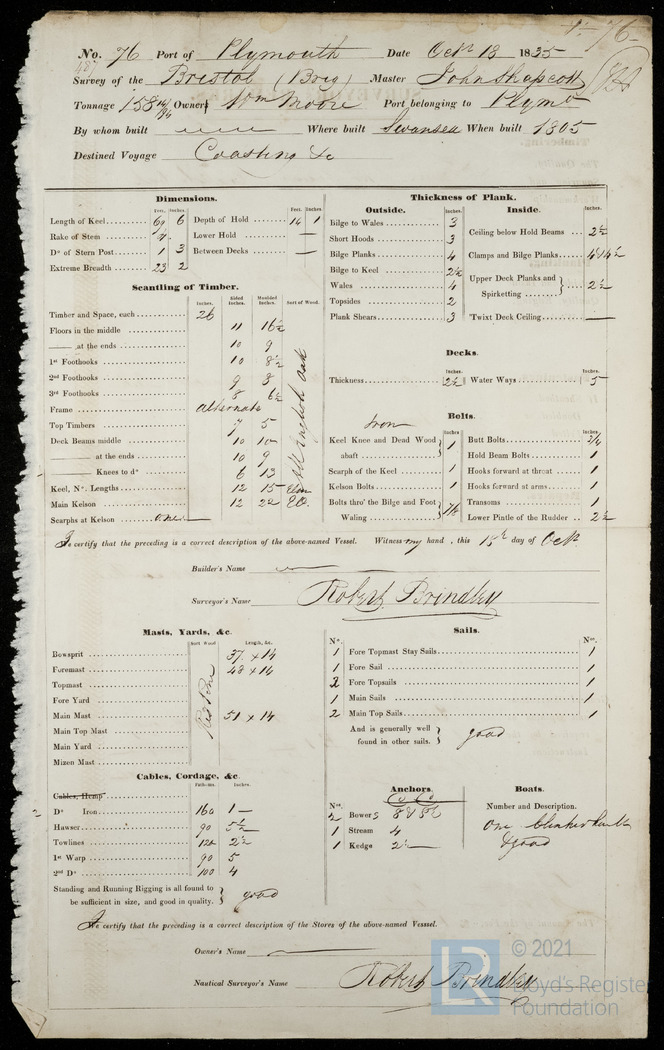 No. 76 Port of Plymouth Date Octr 13 1835
Survey of the Bristol (Brig) Master John Shapcott
Tonnage 158 Owner Wm Moore Port belonging to Plymo
By whom built Where built Swansea When built 1805
Destined Voyage Coasting &c
Dimensions.
Feet. Inches. Feet. Inches.
Length of Keel 69 6 Depth of Hold 14 1
Rake of Stem 4 Lower Hold —
Do of Stern Post 1 3 Between Decks —
Extreme Breadth 23 2
Scantling of Timber.
Inches. Sided Inches. Moulded Inches. Sort of Wood.
Timber and Space, each 26
Floors in the middle 11 16½
—— at the ends 10 9
1st Foothooks 10 8½
2nd Foothooks 9 8
3rd Foothooks 8 6½
Frame alternate
Top Timbers 7 5
Deck Beams middle 10 10
—— at the ends 10 9
—— Knees to do 6 13
All English Oak
Keel, No. Lengths 12 15 Elm
Main Kelson 12 22 EO.
Scarphs at Kelson
Thickness of Plank.
Outside. Inches.
Bilge to Wales 3
Short Hoods 3
Bilge Planks 4
Bilge to Keel 2½
Wales 4
Topsides 2
Plank Shears 3
Inside. Inches.
Ceiling below Hold Beams 2½
Clamps and Bilge Planks 4 & 4½
Upper Deck Planks and Spirketting 2½
'Twixt Deck Ceiling —
Decks.
Inches. Inches.
Thickness 2½ Water Ways 5
Bolts.
Iron
Inches Inches.
Keel Knee and Dead Wood abaft 1 Butt Bolts 3/4
Hold Beam Bolts 1
Scarph of the Keel 1 Hooks forward at throat 1
Kelson Bolts 1 Hooks forward at arms 1
Bolts thro' the Bilge and Foot Waling 7/8 Transoms 1
Lower Pintle of the Rudder 2½
I certify that the preceding is a correct description of the above-named Vessel. Witness my hand, this 15th day of Octr
Builder's Name
Surveyor's Name Robert Brindley
Masts, Yards, &c.
Sort Wood Length, &c.
Bowsprit 37 × 14
Foremast 48 × 14
Topmast
Fore Yard
Main Mast 51 × 14
Main Top Mast
Main Yard
Mizen Mast
Red Pine
Sails.
No. Nos.
1 Fore Topmast Stay Sails 1
1 Fore Sail 1
2 Fore Topsails 1
1 Main Sails 1
2 Main Top Sails 1
And is generally well found in other sails. good
Cables, Cordage, &c.
Fathoms. Inches.
Cables, Hemp
2 Do Iron 160 1 —
Hawser 90 5½
Towlines 120 2½
1st Warp 90 5
2nd Do 100 4
Standing and Running Rigging is all found to be sufficient in size, and good in quality. good
Anchors.
Nos.
2 Bowers
1 Stream 4
1 Kedge 2½
Boats.
Number and Description.
One clinker built
& good
I certify that the preceding is a correct description of the Stores of the above-named Vessel.
Owner's Name
Nautical Surveyor's Name Robert Brindley
LR © 2021
Lloyd's Register
Foundation